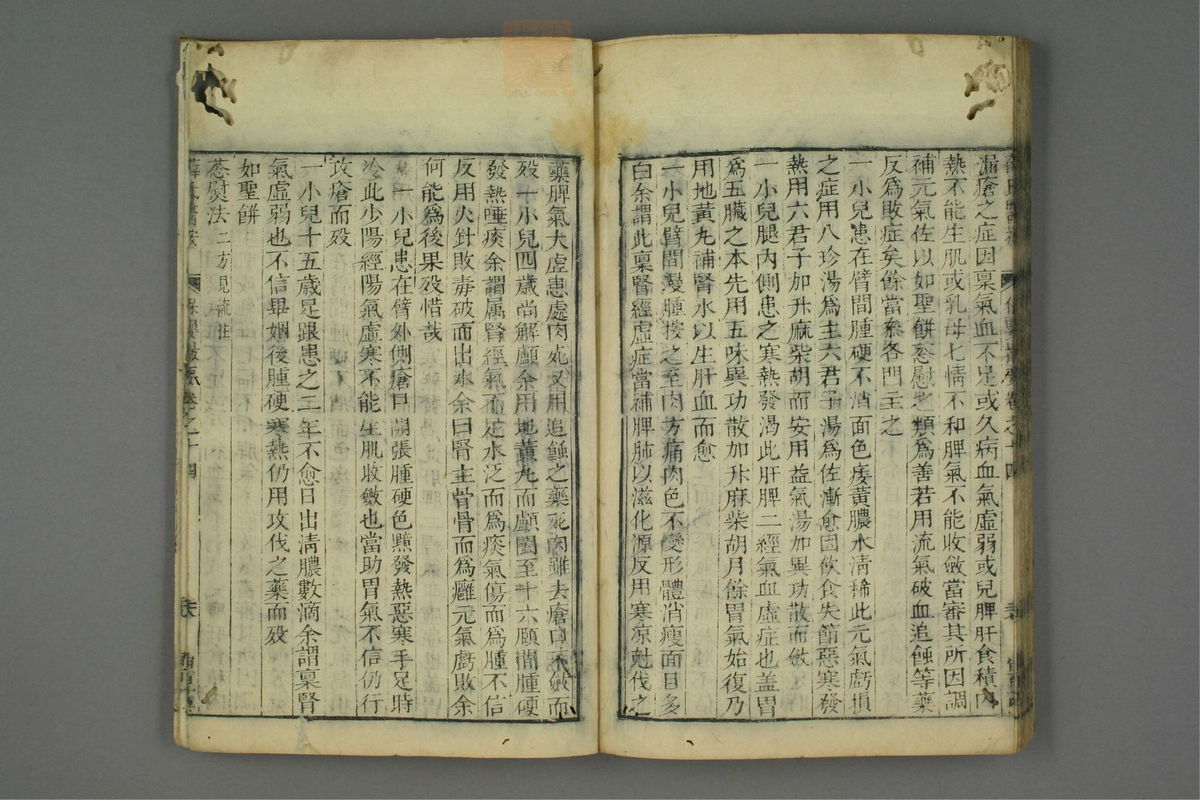 漏瘡之症因稟氣血不足或久病血氣虛弱或兒脾肝食積內
熱不能生肌或乳母七情不和脾氣不能收斂當審其所因調
補元氣佐以如聖餅葱慰之類爲善若用流氣破血追蝕等藥
反爲敗症矣餘當叅各門主之
一小兒患在臂間腫硬不消面色痿黃膿水清稀此元氣虧損
之症用八珍湯爲主六君子湯爲佐漸愈因飲食失節惡寒發
熱用六君子加升麻柴胡而安用益氣湯加異功散而斂
一小兒腿內側患之寒熱發渴此肝脾二經氣血虛症也盖胃
爲五臟之本先用五味異功散加升麻柴胡月餘胃氣始復乃
用地黃丸補腎水以生肝血而愈
一小兒臂間漫腫按之至肉方痛肉色不變形體消瘦面目多
白余謂此稟腎經虛症當補脾肺以滋化源反用寒凉尅伐之
藥脾氣大虛患處肉死又用追蝕之藥死肉雖去瘡口不斂而
歿一小兒四歲尚解顱余用地黃丸而顱闔至十六願潤腫硬
發熱唾痰余謂属腎經氣不足水泛而爲痰氣傷而爲腫不信
反用火針敗毒破而出水余曰腎主骨骨而爲癰元氣虧敗余
何能爲後果歿惜哉
一小兒患在臂外側瘡口開張腫硬色黯發熱惡寒手足時
冷此少陽經陽氣虛寒不能生肌收斂也當助胃氣不信仍行
攻瘡而歿
一小兒十五歲足跟患之二年不愈日出清膿數滴余謂稟腎
氣虛弱也不信畢姻後腫硬寒熱仍用攻伐之藥而歿
如聖餅
葱熨法二方見流注
薛氏醫案 保嬰撮要卷之十四